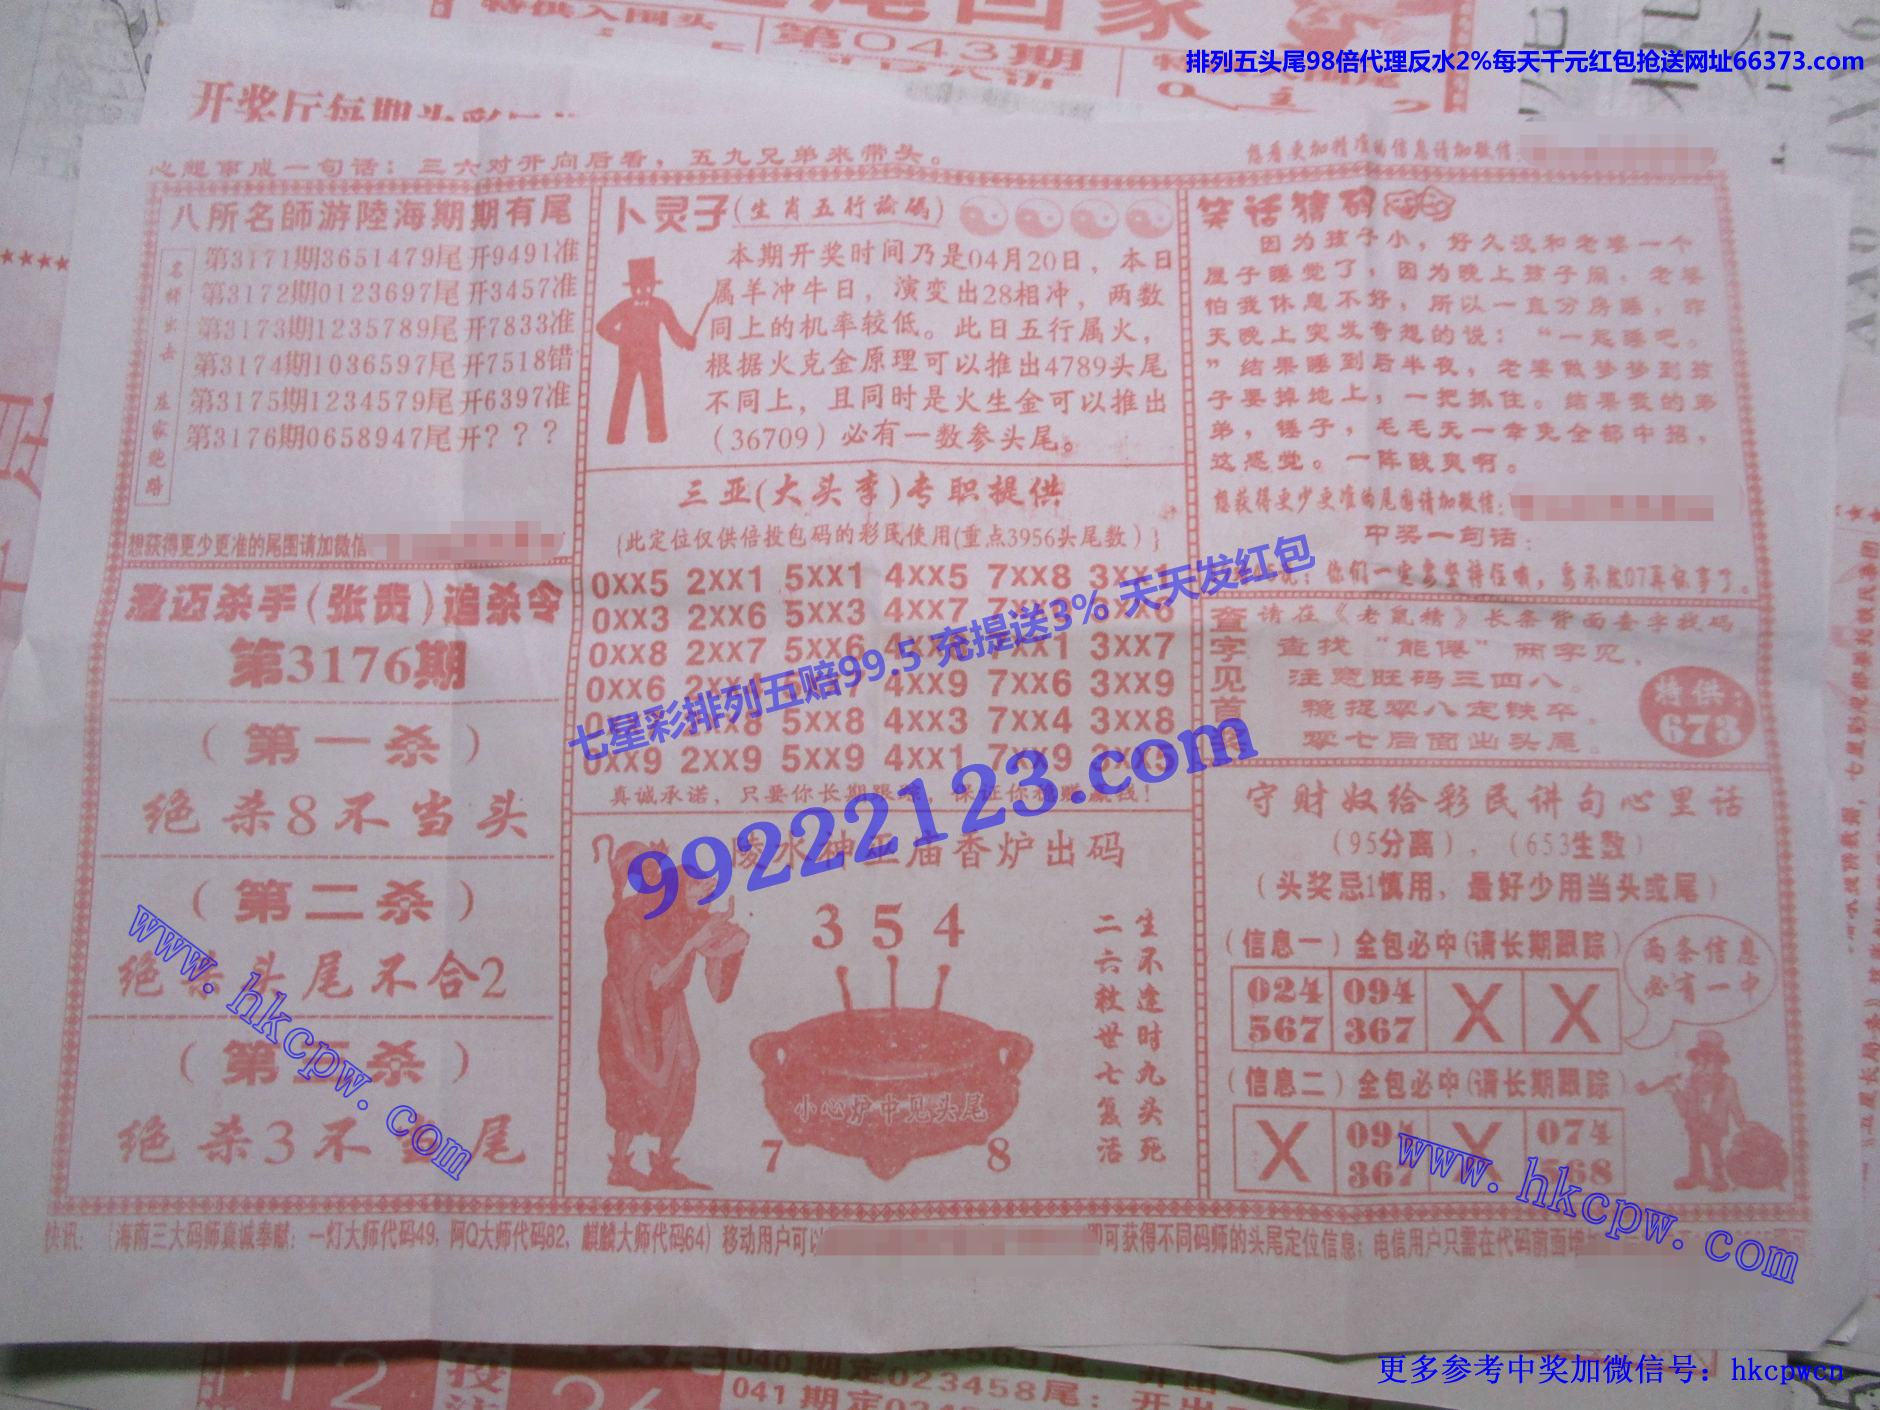 排列五头尾98倍代理反水2%每天千元红包抢送网址66373.com
第043期
心想事成一句话：三六对开向后看，五九兄弟来带头。
想看更加精准的信息请加微信：
八所名師游陸海期期有尾
第3171期3651479尾开9491准
第3172期0123697尾开3457准
第3173期1235789尾开7833准
第3174期1036597尾开7518错
第3175期1234579尾开6397准
第3176期0658947尾开？？？
想获得更少更准的尾图请加微信
澄迈杀手(张贵)追杀令
第3176期
（第一杀）
绝杀8不当头
（第二杀）
头尾不合2
（第三杀）
绝杀3不当尾
卜灵子(生肖五行論码)
本期开奖时间乃是04月20日，本日
属羊冲牛日，演变出28相冲，两数
同上的机率较低。此日五行属火，
根据火克金原理可以推出4789头尾
不同上，且同时是火生金可以推出
（36709）必有一数参头尾。
三亚(大头李)专职提供
{此定位仅供倍投包码的彩民使用(重点3956头尾数)}
0XX5 2XX1 5XX1 4XX5 7XX8
0XX3 2XX6 5XX3 4XX7
0XX8 2XX7 5XX6 3XX7
0XX6 4XX9 7XX6 3XX9
5XX8 4XX3 7XX4 3XX8
0XX9 2XX9 5XX9 4XX1 7XX9
七星彩排列五赔99.5 充提送3% 天天发红包
99222123.com
陵水神巫庙香炉出码
3 5 4
生不逢时九头死
二六救世七复活
小心炉中见头尾
7 8
笑话猜码
因为孩子小，好久没和老婆一个
屋子睡觉了，因为晚上孩子闹，老婆
怕我休息不好，所以一直分房睡，昨
天晚上突发奇想的说：“一起睡吧。
”结果睡到后半夜，老婆做梦梦到孩
子要掉地上，一把抓住。结果我的弟
弟，锤子，毛毛无一幸免全部中招，
这感觉。一阵酸爽啊。
想获得更少更准的尾图请加微信：
中奖一句话：
查字见
请在《老鼠精》长条背面查字找码
注意旺码三四八。
稳捉零八定铁卒。
零七后面出头尾。
特供：
673
守财奴给彩民讲句心里话
（95分离），（653生数）
（头奖忌1慎用，最好少用当头或尾）
（信息一）全包必中(请长期跟踪)
024 094 X X
567 367
两条信息
必有一中
（信息二）全包必中(请长期跟踪)
X 094 X 074
367 568
快讯：（海南三大码师真诚奉献：一灯大师代码49，阿Q大师代码82，麒麟大师代码64）移动用户可以
即可获得不同码师的头尾定位信息；电信用户只需在代码前面增
www.hkcpw.com
www.hkcpw.com
更多参考中奖加微信号：hkcpwcn